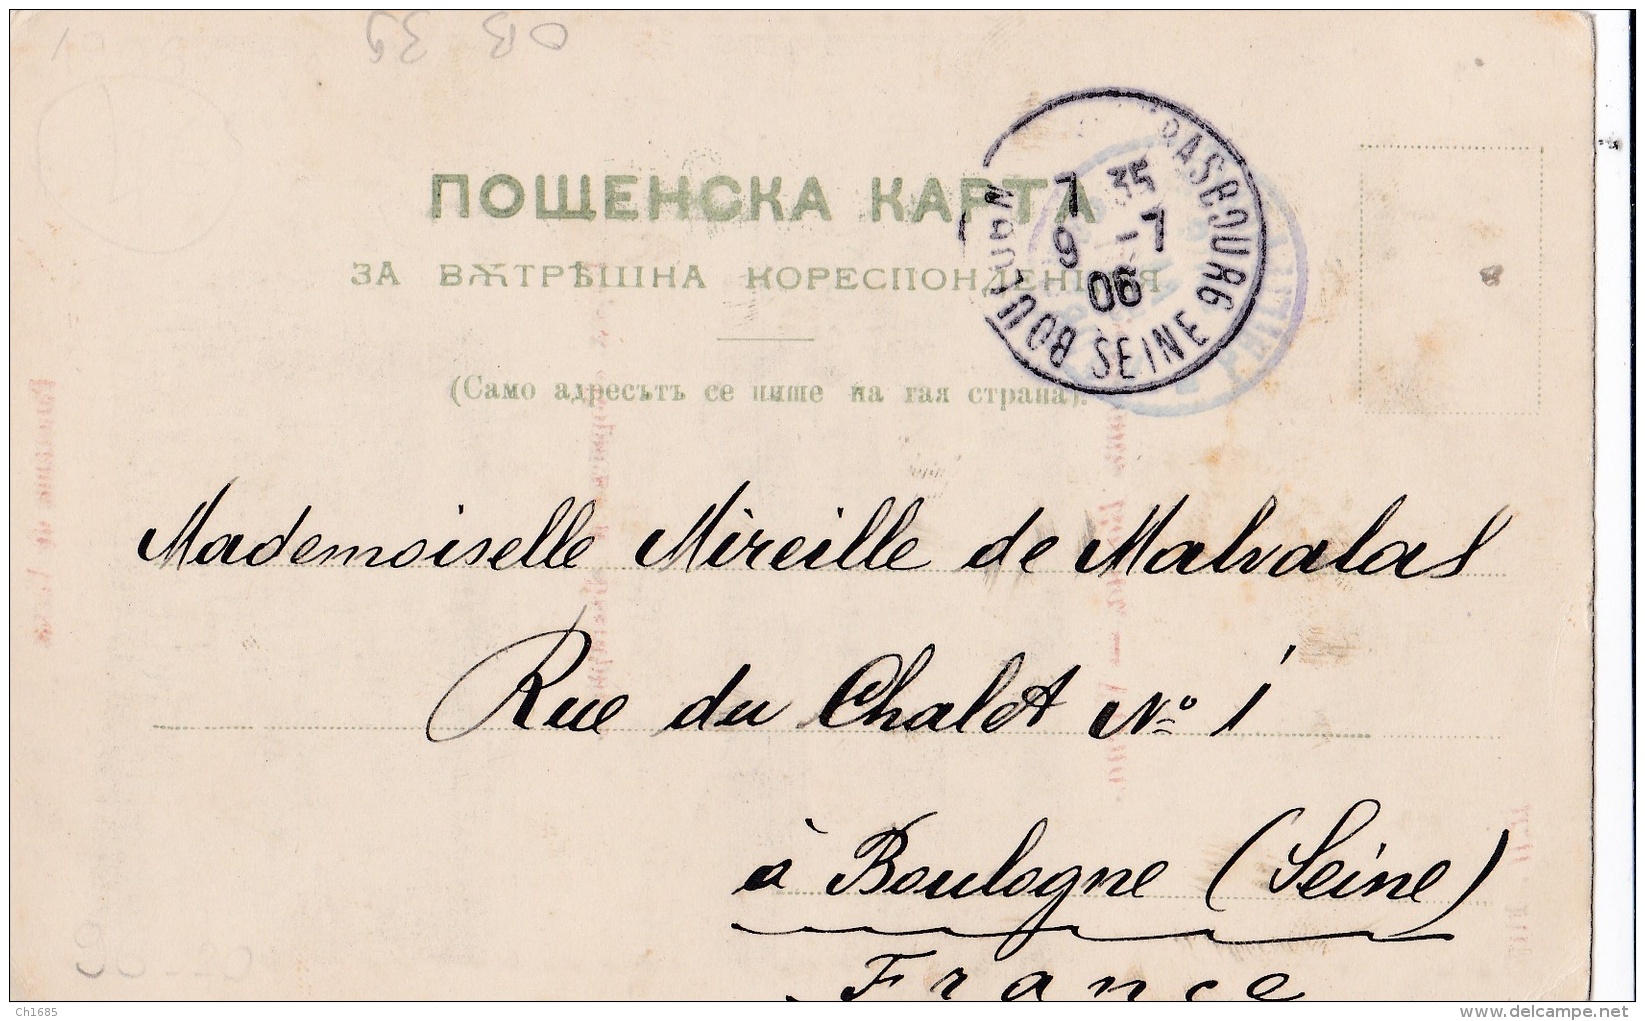 OB 39
ПОЩЕНСКА КАРТА
ЗА ВѪТРѢШНА КОРЕСПОНДЕНЦИЯ
(Само адресътъ се пише на тая страна).
BOULOGNE SEINE
7 35
9 -7
06
Mademoiselle Mireille de Malvalas
Rue du Chalet No 1
à Boulogne (Seine)
France
Ch1685
delcampe.net